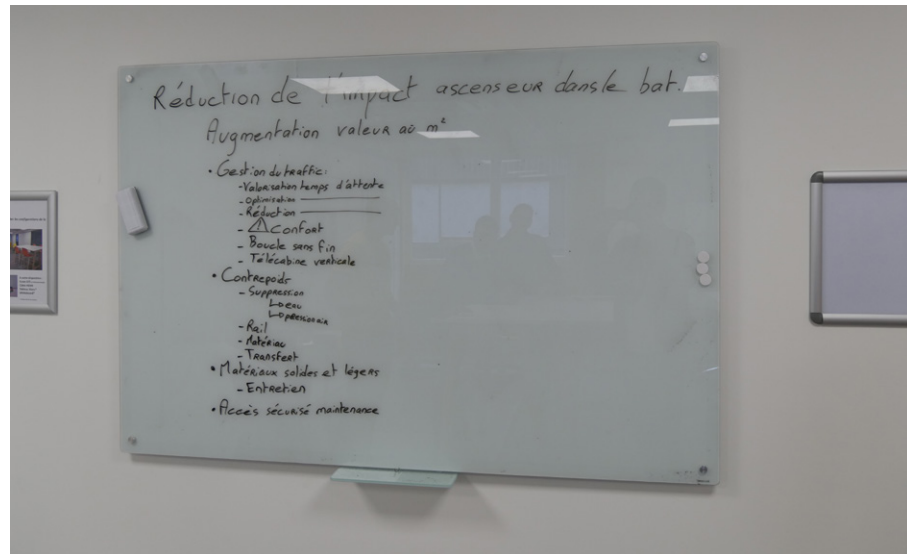 Réduction de l'impact ascenseur dans le bat.
Augmentation valeur au m²
• Gestion du traffic:
- Valorisation temps d'attente
- Optimisation ————
- Réduction ————
- ⚠ Confort
- Boucle sans fin
- Télécabine verticale
• Contrepoids
- Suppression
↳ eau
↳ pression air
- Rail
- Matériau
- Transfert
• Matériaux solides et légers
- Entretien
• Accès sécurisé maintenance